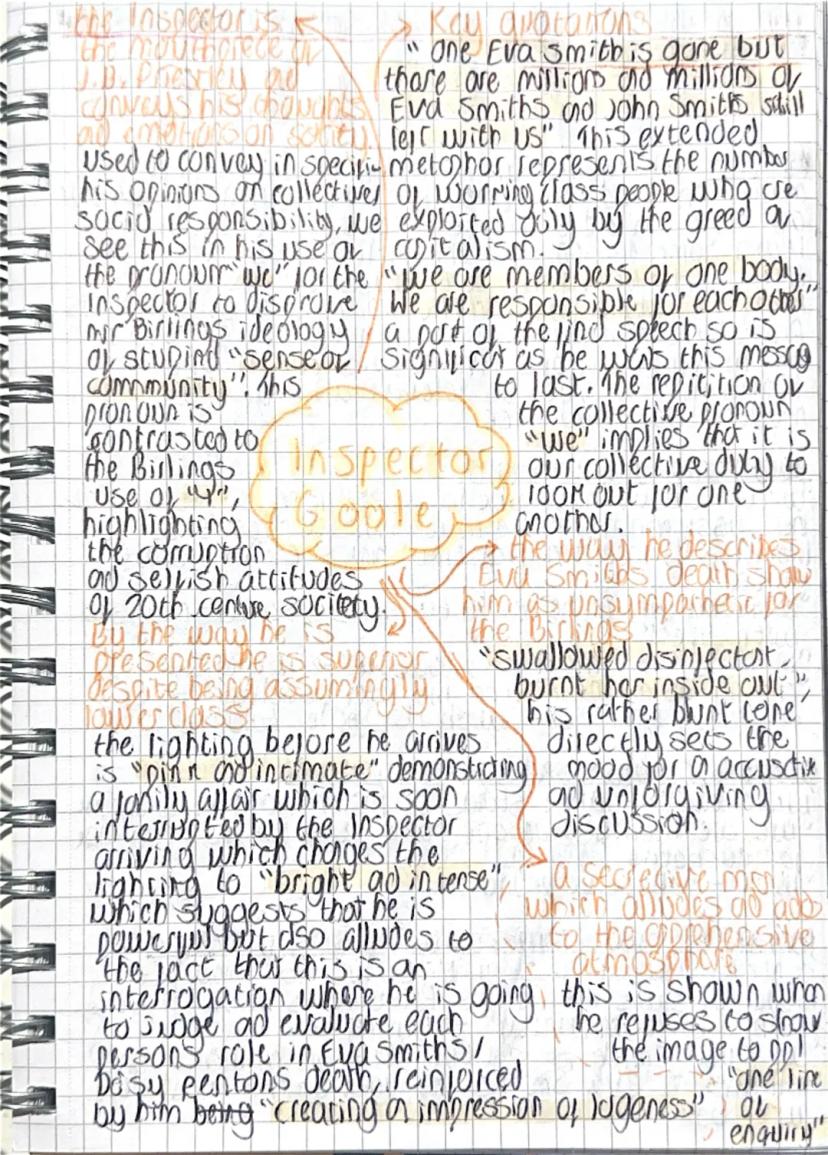 the Inspector is
the mouthpiece of
J.B. Priestley ad
conveys his thoughts
ad emotions on society.
used to convey in specific
his opinions on collective
social responsibility, we
see this in his use of
the pronoun "we" for the
Inspector to disprove
mr Birlings ideology
of stupid "sense of
community". This
pronoun is
contrasted to
the Birlings
use of "I",
highlighting
the corruption
ad selfish attitudes
of 20th centure society.
Key quotations
"one Eva Smith is gone but
there are millions ad millions of
Eva Smiths ad John Smiths still
left with us" This extended
metaphor represents the number
of working class people who are
exploited by the greed of
capitalism.
"We are members of one body.
We are responsible for each other"
a part of the final speech so is
significant as he wants this message
to last. The repitition of
the collective pronoun
"we" implies that it is
our collective duty to
look out for one
another.
Inspector
Goole
the way he describes
Eva Smiths death show
him as unsympathetic for
the Birlings
"swallowed disinfectant,
burnt her inside out",
his rather blunt tone
directly sets the
mood for a accusative
ad unforgiving
discussion.
By the way he is
presented he is superior
despite being assumingly
lower class
the lighting before he arrives
is "pink ad intimate" demonstrating
a family affair which is soon
interrupted by the Inspector
arriving which changes the
lighting to "bright ad intense"
which suggests that he is
powerful but also alludes to
the fact that this is an
interrogation where he is going
to judge ad evaluate each
persons role in Eva Smiths/
Daisy Rentons death, reinforced
by him being "creating a impression of largeness"
a secretive man
which alludes ad adds
to the apprehensive
atmosphere
this is shown when
he refuses to show
the image to ppl
"one line
of
enquiry"